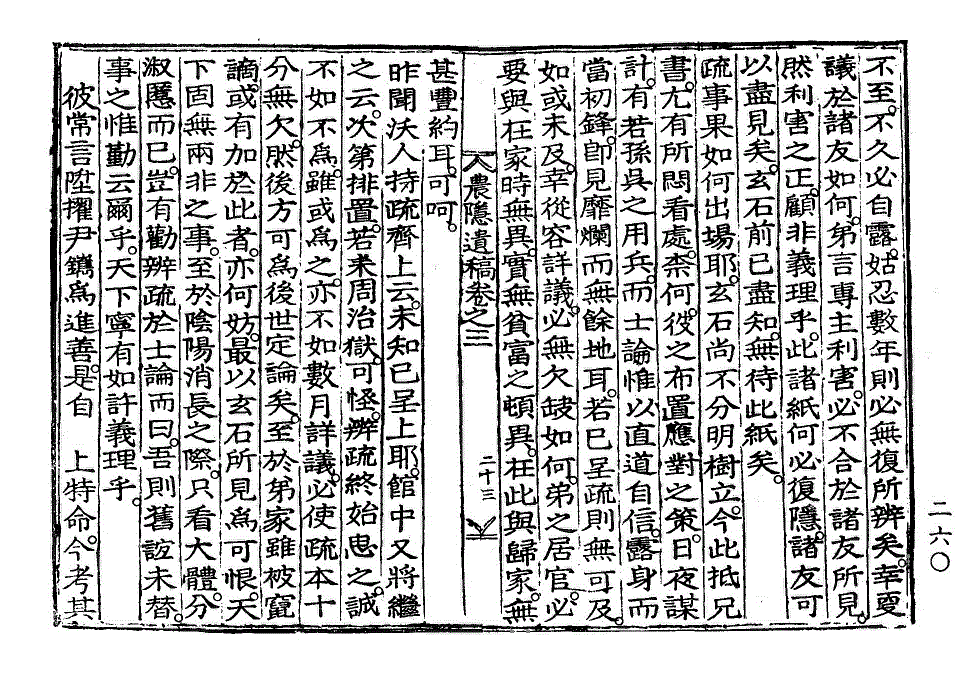 不至。不久必自露。姑忍數年則必無復所辨矣。幸更
議於諸友如何。弟言專主利害。必不合於諸友所見。
然利害之正。顧非義理乎。此諸紙何必復隱。諸友可
以盡見矣。玄石前已盡知。無待此紙矣。
疏事果如何出場耶。玄石尙不分明樹立。今此抵兄
書。尤有所悶看處。柰何。彼之布置應對之策。日夜謀
計。有若孫吳之用兵。而士論惟以直道自信。露身而
當初鋒。卽見靡爛而無餘地耳。若已呈疏則無可及。
如或未及。幸從容詳議。必無欠缺如何。弟之居官。必
要與在家時無異。實無貧富之頓異。在此與歸家。無
農隱遺稿卷之三 二十三
甚豐約耳。可呵。
昨聞沃人持疏齊上云。未知已呈上耶。館中又將繼
之云。次第排置。若來周治獄。可怪。辨疏終始思之。誠
不如不爲。雖或爲之。亦不如數月詳議。必使疏本十
分無欠。然後方可爲後世定論矣。至於弟家雖被竄
謫。或有加於此者。亦何妨。最以玄石所見爲可恨。天
下固無兩非之事。至於陰陽消長之際。只看大體。分
淑慝而已。豈有勸辨疏於士論而曰。吾則舊誼未替。
事之惟勤云爾乎。天下寧有如許義理乎。
彼常言陞擢尹鑴爲進善。是自 上特命。今考其
二六〇